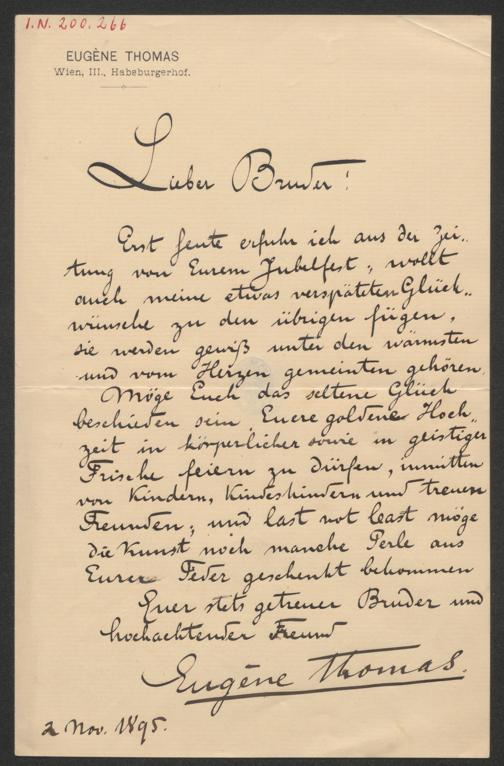 I.N. 200.266
EUGÈNE THOMAS
Wien, III., Habsburgerhof.
Lieber Bruder!
Erst heute erfuhr ich aus der Zei-
tung von Eurem Jubelfest, wollt
auch meine etwas verspäteten Glück-
wünsche zu den übrigen fügen,
sie werden gewiß unter den wärmsten
und vom Herzen gemeinten gehören.
Möge Euch das seltene Glück
beschieden sein, Euere goldene Hoch-
zeit in körperlicher sowie in geistiger
Frische feiern zu dürfen, inmitten
von Kindern, Kindeskindern und treuen
Freunden; und last not least möge
die Kunst noch manche Perle aus
Eurer Feder geschenkt bekommen
Euer stets getreuer Bruder und
hochachtender Freund
Eugène Thomas.
2 Nov. 1895.